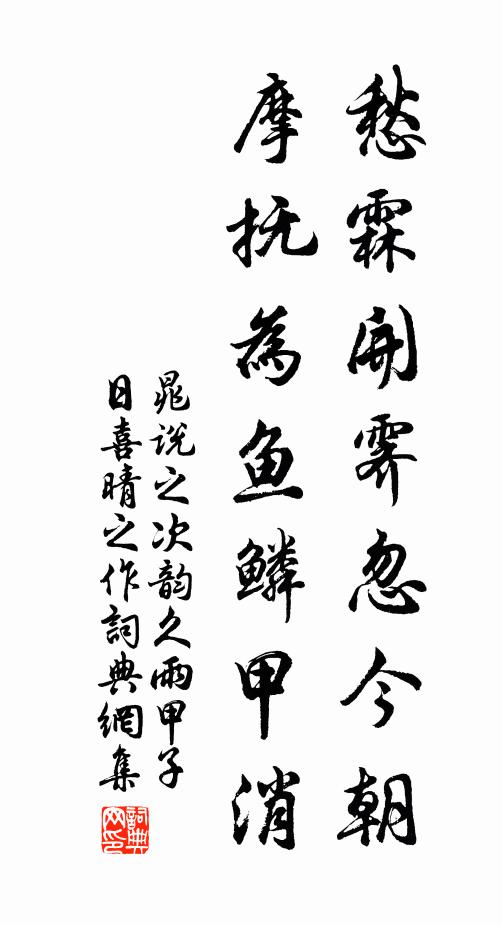 愁霖開霽忽今朝
摩抚為鱼鳞甲消
晁说之次韵久雨甲子
日喜晴之作詞典網集
詞典
网印